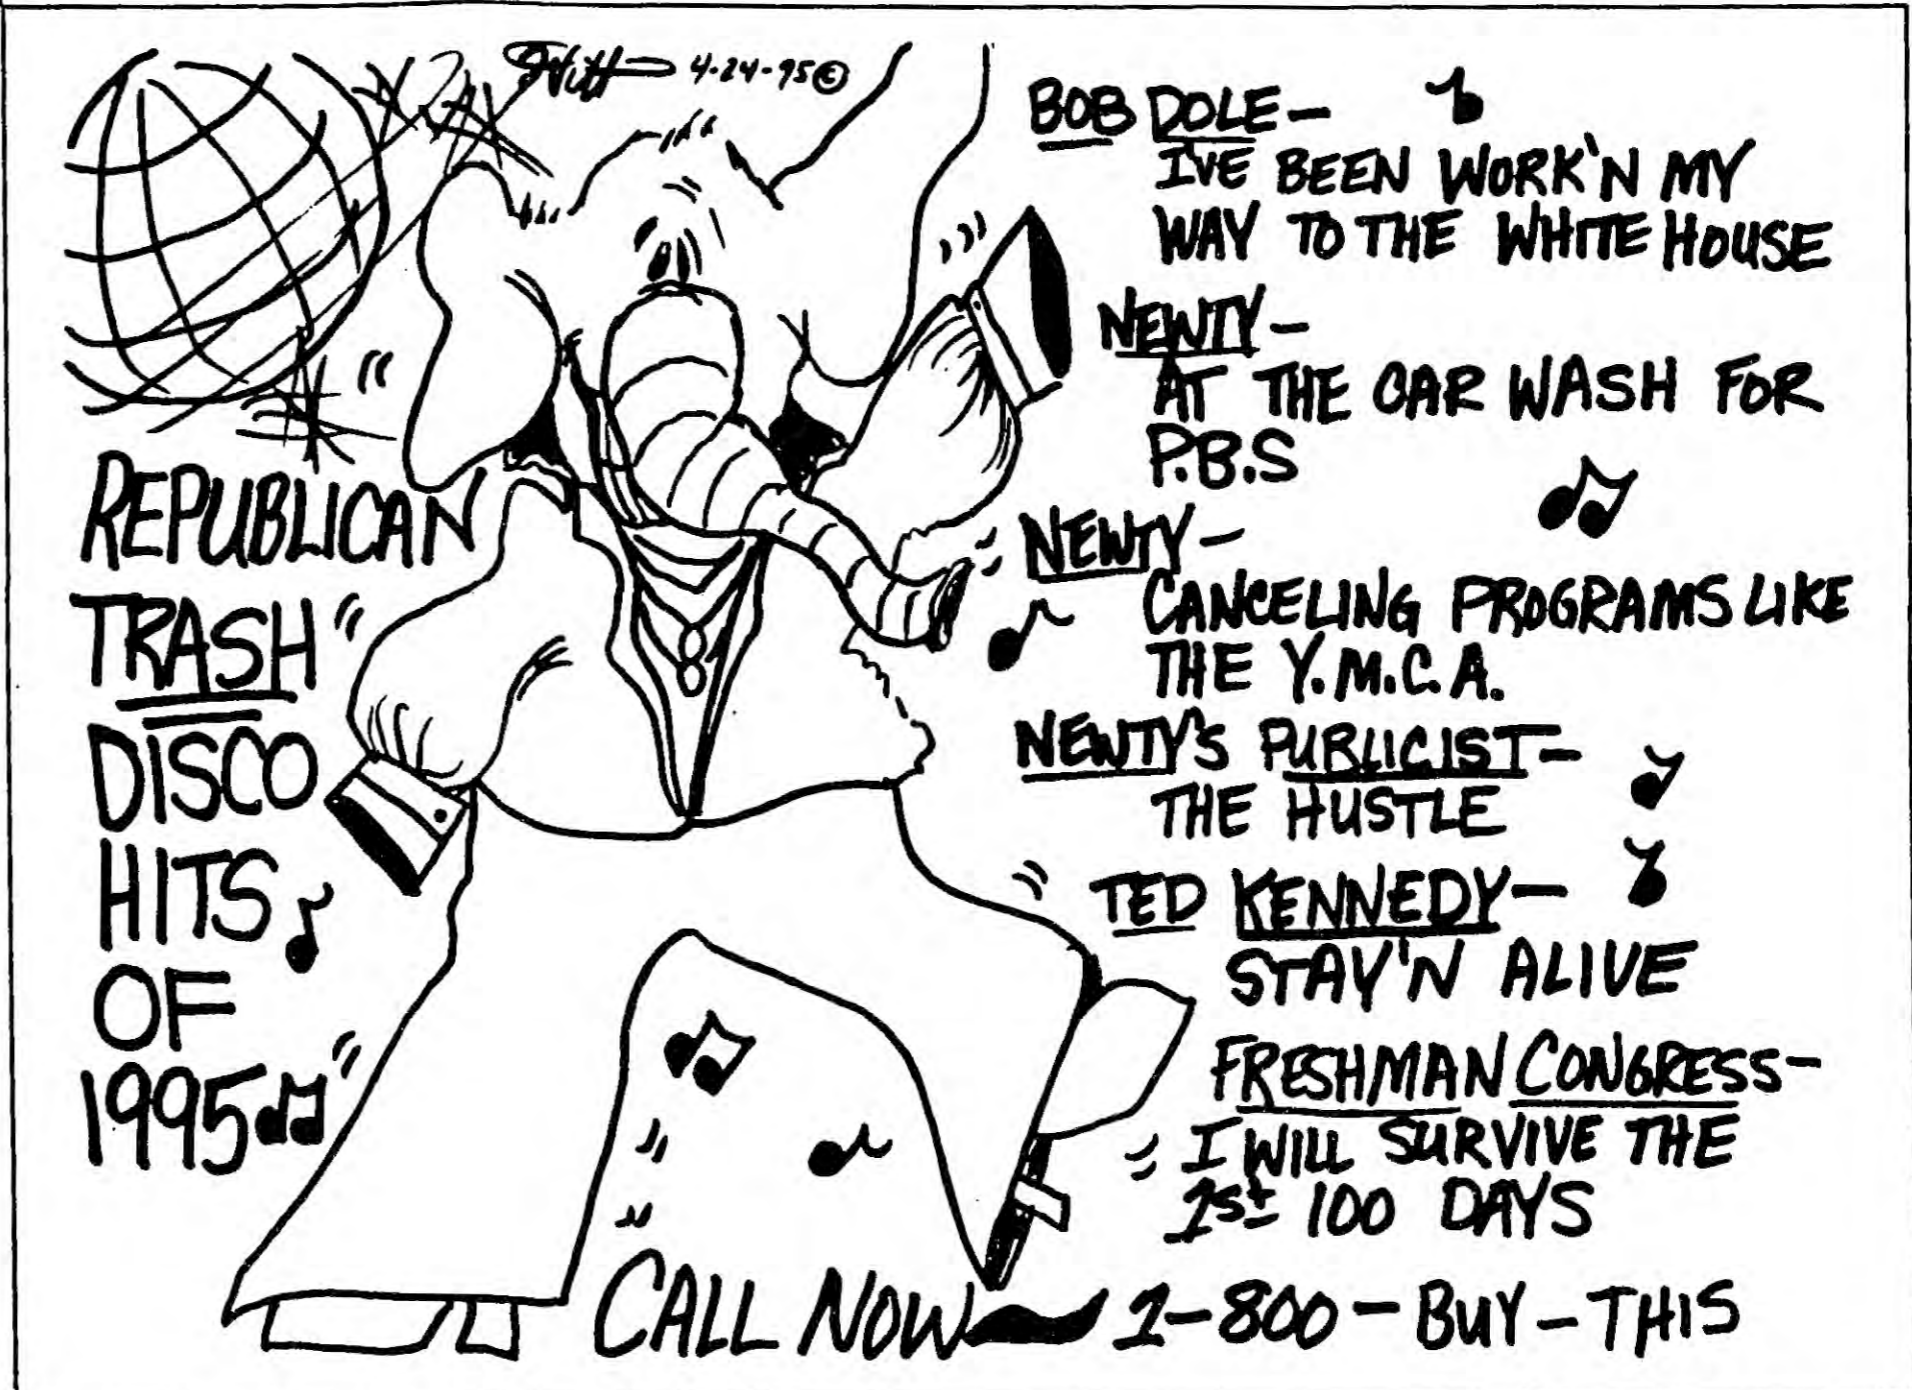 4-24-95©
REPUBLICAN
TRASH
DISCO
HITS
OF
1995
BOB DOLE-
I'VE BEEN WORK'N MY
WAY TO THE WHITE HOUSE
NEWTY-
AT THE CAR WASH FOR
P.B.S
NEWTY-
CANCELING PROGRAMS LIKE
THE Y.M.C.A.
NEWTY'S PUBLICIST-
THE HUSTLE
TED KENNEDY-
STAY'N ALIVE
FRESHMAN CONGRESS-
I WILL SURVIVE THE
1st 100 DAYS
CALL NOW 1-800-BUY-THIS